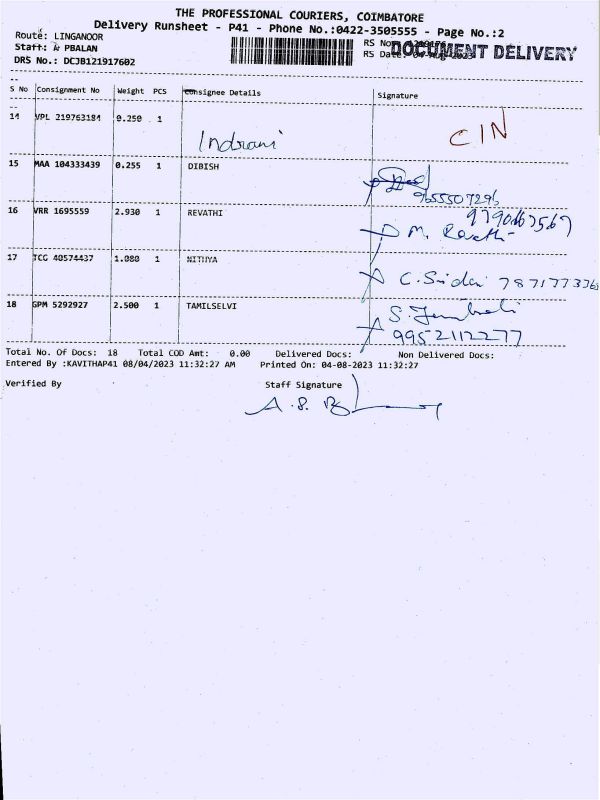 THE PROFESSIONAL COURIERS, COIMBATORE
Delivery Runsheet - P41 - Phone No.:0422-3505555 - Page No.:2
Route: LINGANOOR
RS No
Staff: A PBALAN
RS Date: 04-Aug-2023
DOCUMENT DELIVERY
DRS No.: DCJB121917602
S No Consignment No Weight PCS Consignee Details Signature
14 VPL 219763184 0.250 1 Indrani CIN
15 MAA 104333439 0.255 1 DIBISH 9655507296
16 VRR 1695559 2.930 1 REVATHI 9790467567
M. Revathi
17 TCG 40574437 1.080 1 NITHYA C. 7871773368
18 GPM 5292927 2.500 1 TAMILSELVI S.
9952112277
Total No. Of Docs: 18 Total COD Amt: 0.00 Delivered Docs: Non Delivered Docs:
Entered By :KAVITHAP41 08/04/2023 11:32:27 AM Printed On: 04-08-2023 11:32:27
Verified By Staff Signature